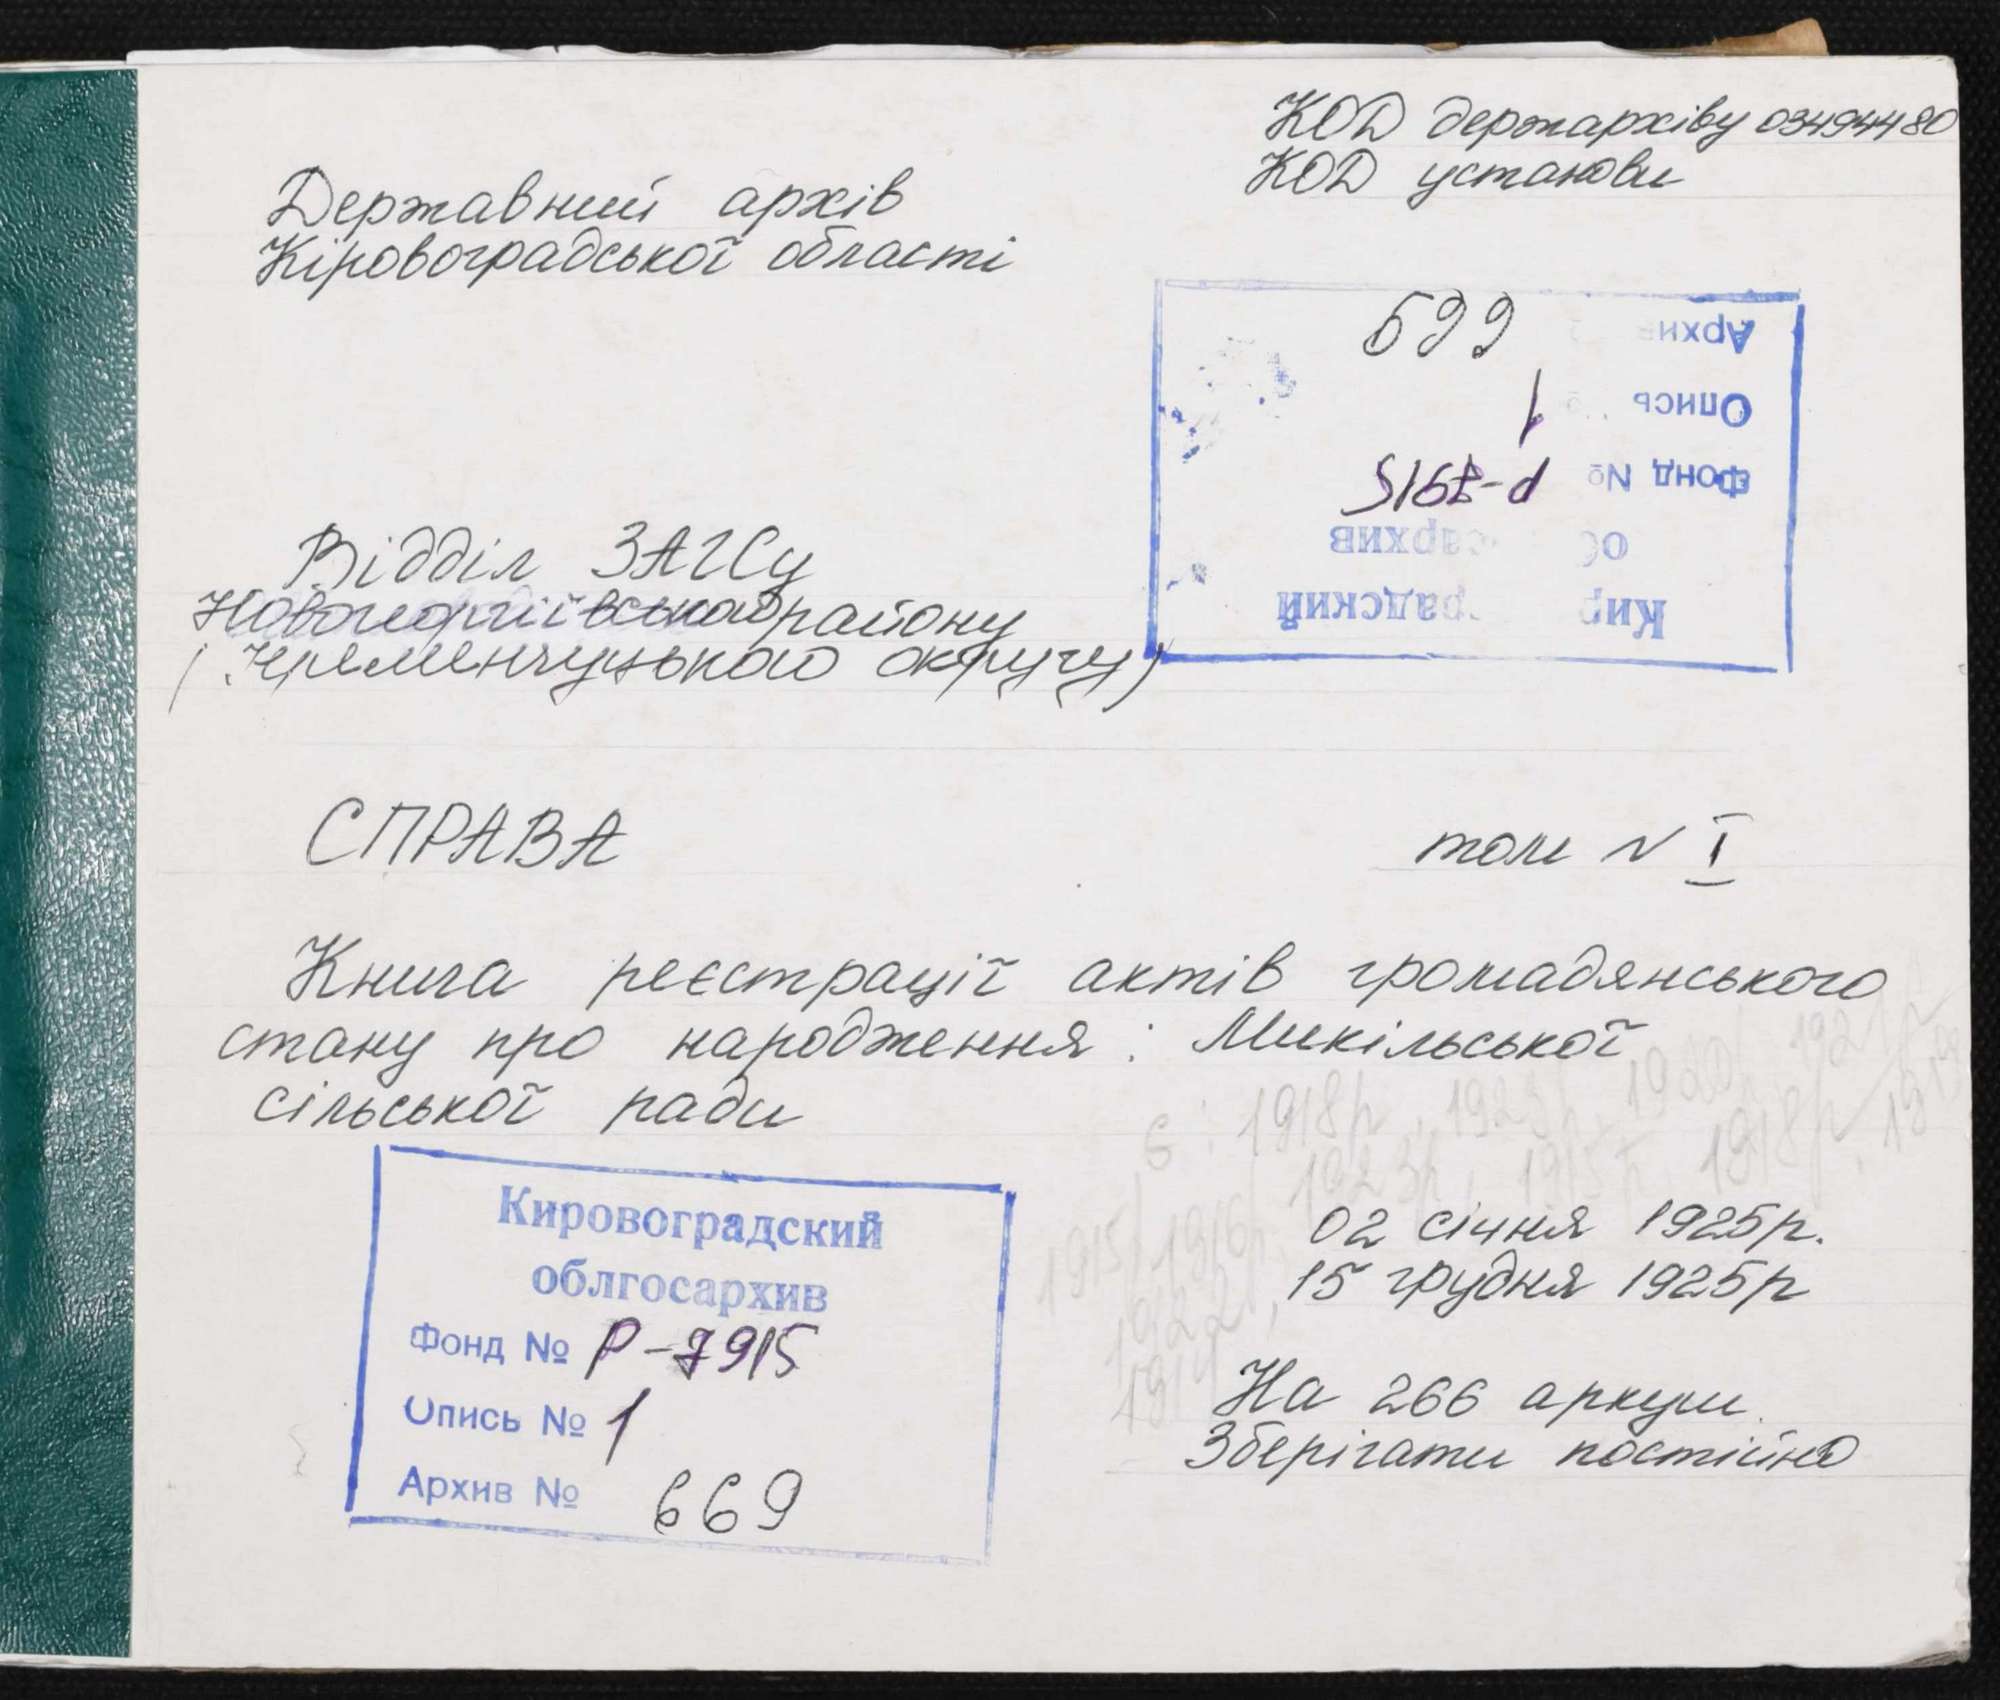 КОД держархіву 03494480
КОД установи
Державний архів
Кіровоградської області
Кировоградский
облгосархив
Фонд № Р-7915
Опись № 1
Архив 669
Відділ ЗАГСу
Новогеоргіївського району
(Кременчуцького округу)
СПРАВА
том N I
Книга реєстрації актів громадянського
стану про народження: Микільської
сільської ради
є: 1918р, 1923р, 1920р, 1921р
1915р, 1916р, 1923р, 1915р, 1918р, 1919
1922р,
1914
02 січня 1925р.
15 грудня 1925р
На 266 аркуш.
Зберігати постійно
Кировоградский
облгосархив
Фонд № Р-7915
Опись № 1
Архив № 669